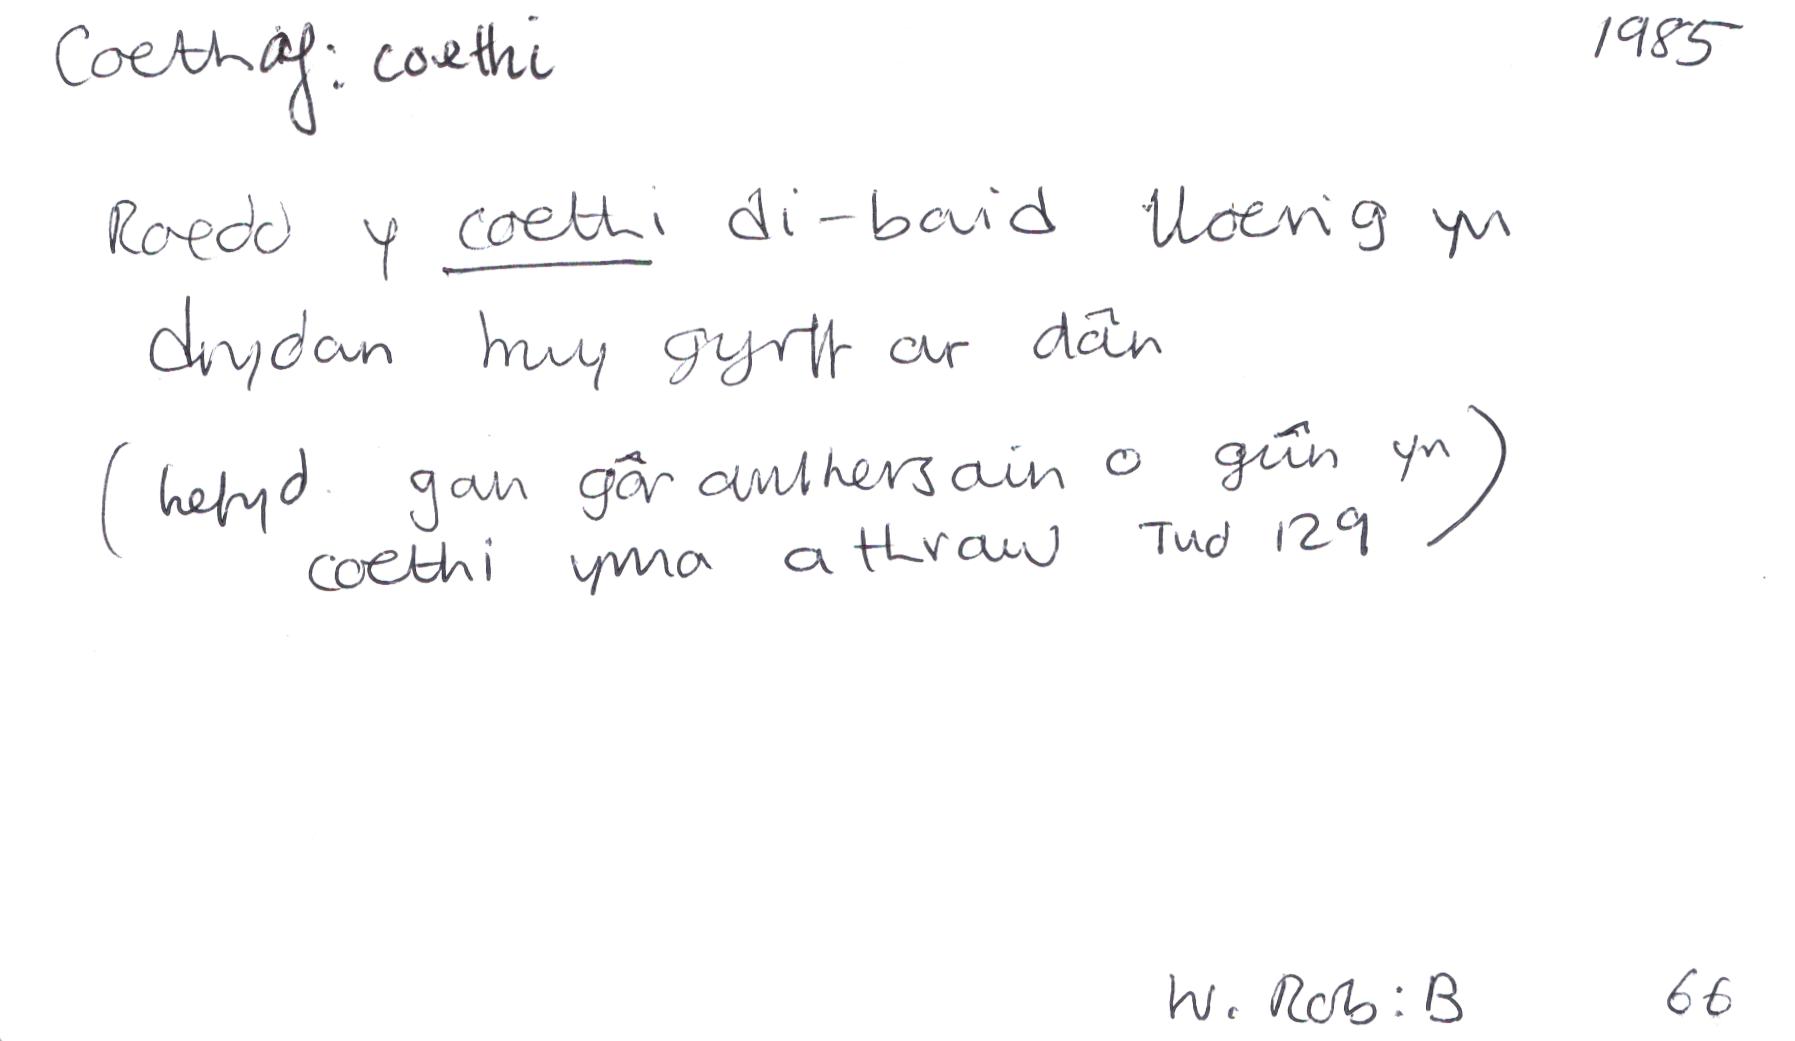 Coethaf: coethi 1985
Roedd y coethi di-baid lloerig yn
drydan trwy gyrff ar dân
(hefyd. gan gôr aml hersain o gŵn yn)
coethi yma a thraw Tud 129
W. Rob: B 66